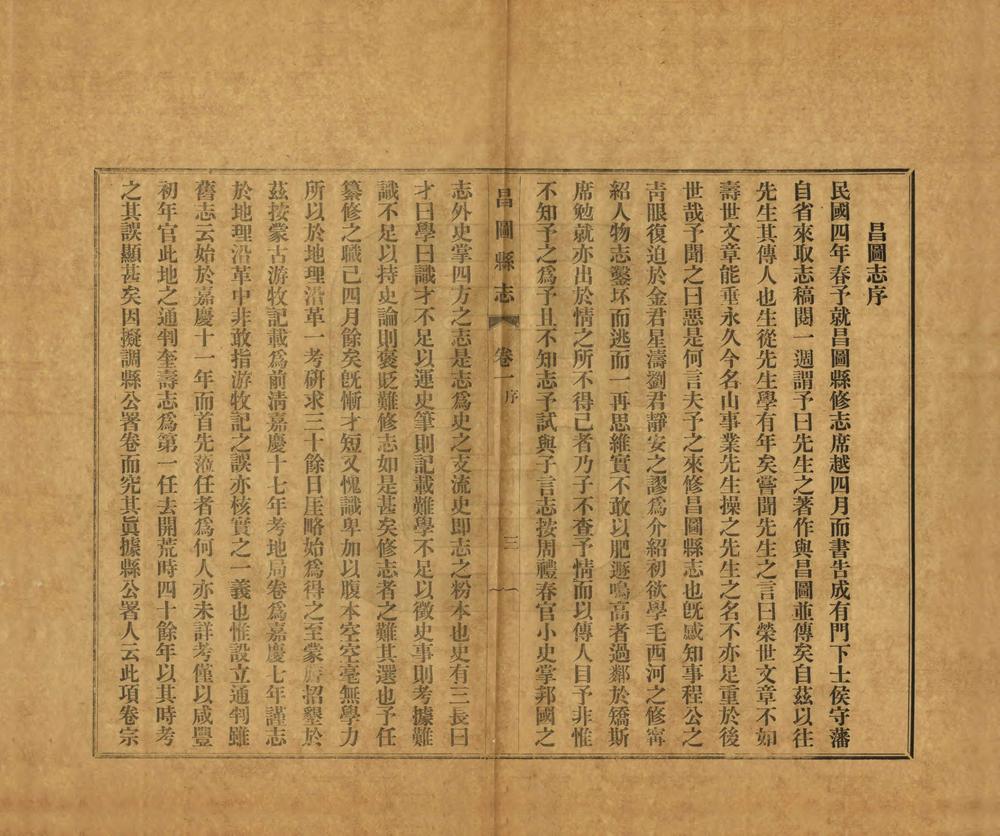 昌圖志序
民國四年春予就昌圖縣修志席越四月而書告成有門下士侯守藩
自省來取志稿閱一週謂予曰先生之著作與昌圖並傳矣自茲以往
先生其傳人也生從先生學有年矣嘗聞先生之言曰榮世文章不如
壽世文章能垂永久今名山事業先生操之先生之名不亦足重於後
世哉予聞之曰惡是何言夫予之來修昌圖縣志也旣感知事程公之
靑眼復迫於金君星濤劉君靜安之謬爲介紹初欲學毛西河之修甯
紹人物志鑿坏而逃而一再思維實不敢以肥遯鳴高者過鄰於矯斯
席勉就亦出於情之所不得已者乃子不查予情而以傳人目予非惟
不知予之爲予且不知志予試與子言志按周禮春官小史掌邦國之
昌圖縣志 卷一序 三
志外史掌四方之志是志爲史之支流史即志之粉本也史有三長曰
才曰學曰識才不足以運史筆則記載難學不足以徵史事則考據難
識不足以持史論則褒貶難修志如是甚矣修志者之難其選也予任
纂修之職已四月餘矣旣慚才短又愧識卑加以腹本空空毫無學力
所以於地理沿革一考研求三十餘日厓略始爲得之至蒙旗招墾於
茲按蒙古游牧記載爲前淸嘉慶十七年考地局卷爲嘉慶七年謹志
於地理沿革中非敢指游牧記之誤亦核實之一義也惟設立通判雖
舊志云始於嘉慶十一年而首先涖任者爲何人亦未詳考僅以咸豐
初年官此地之通判奎壽志爲第一任去開荒時四十餘年以其時考
之其誤顯甚矣因擬調縣公署卷而究其眞據縣公署人云此項卷宗